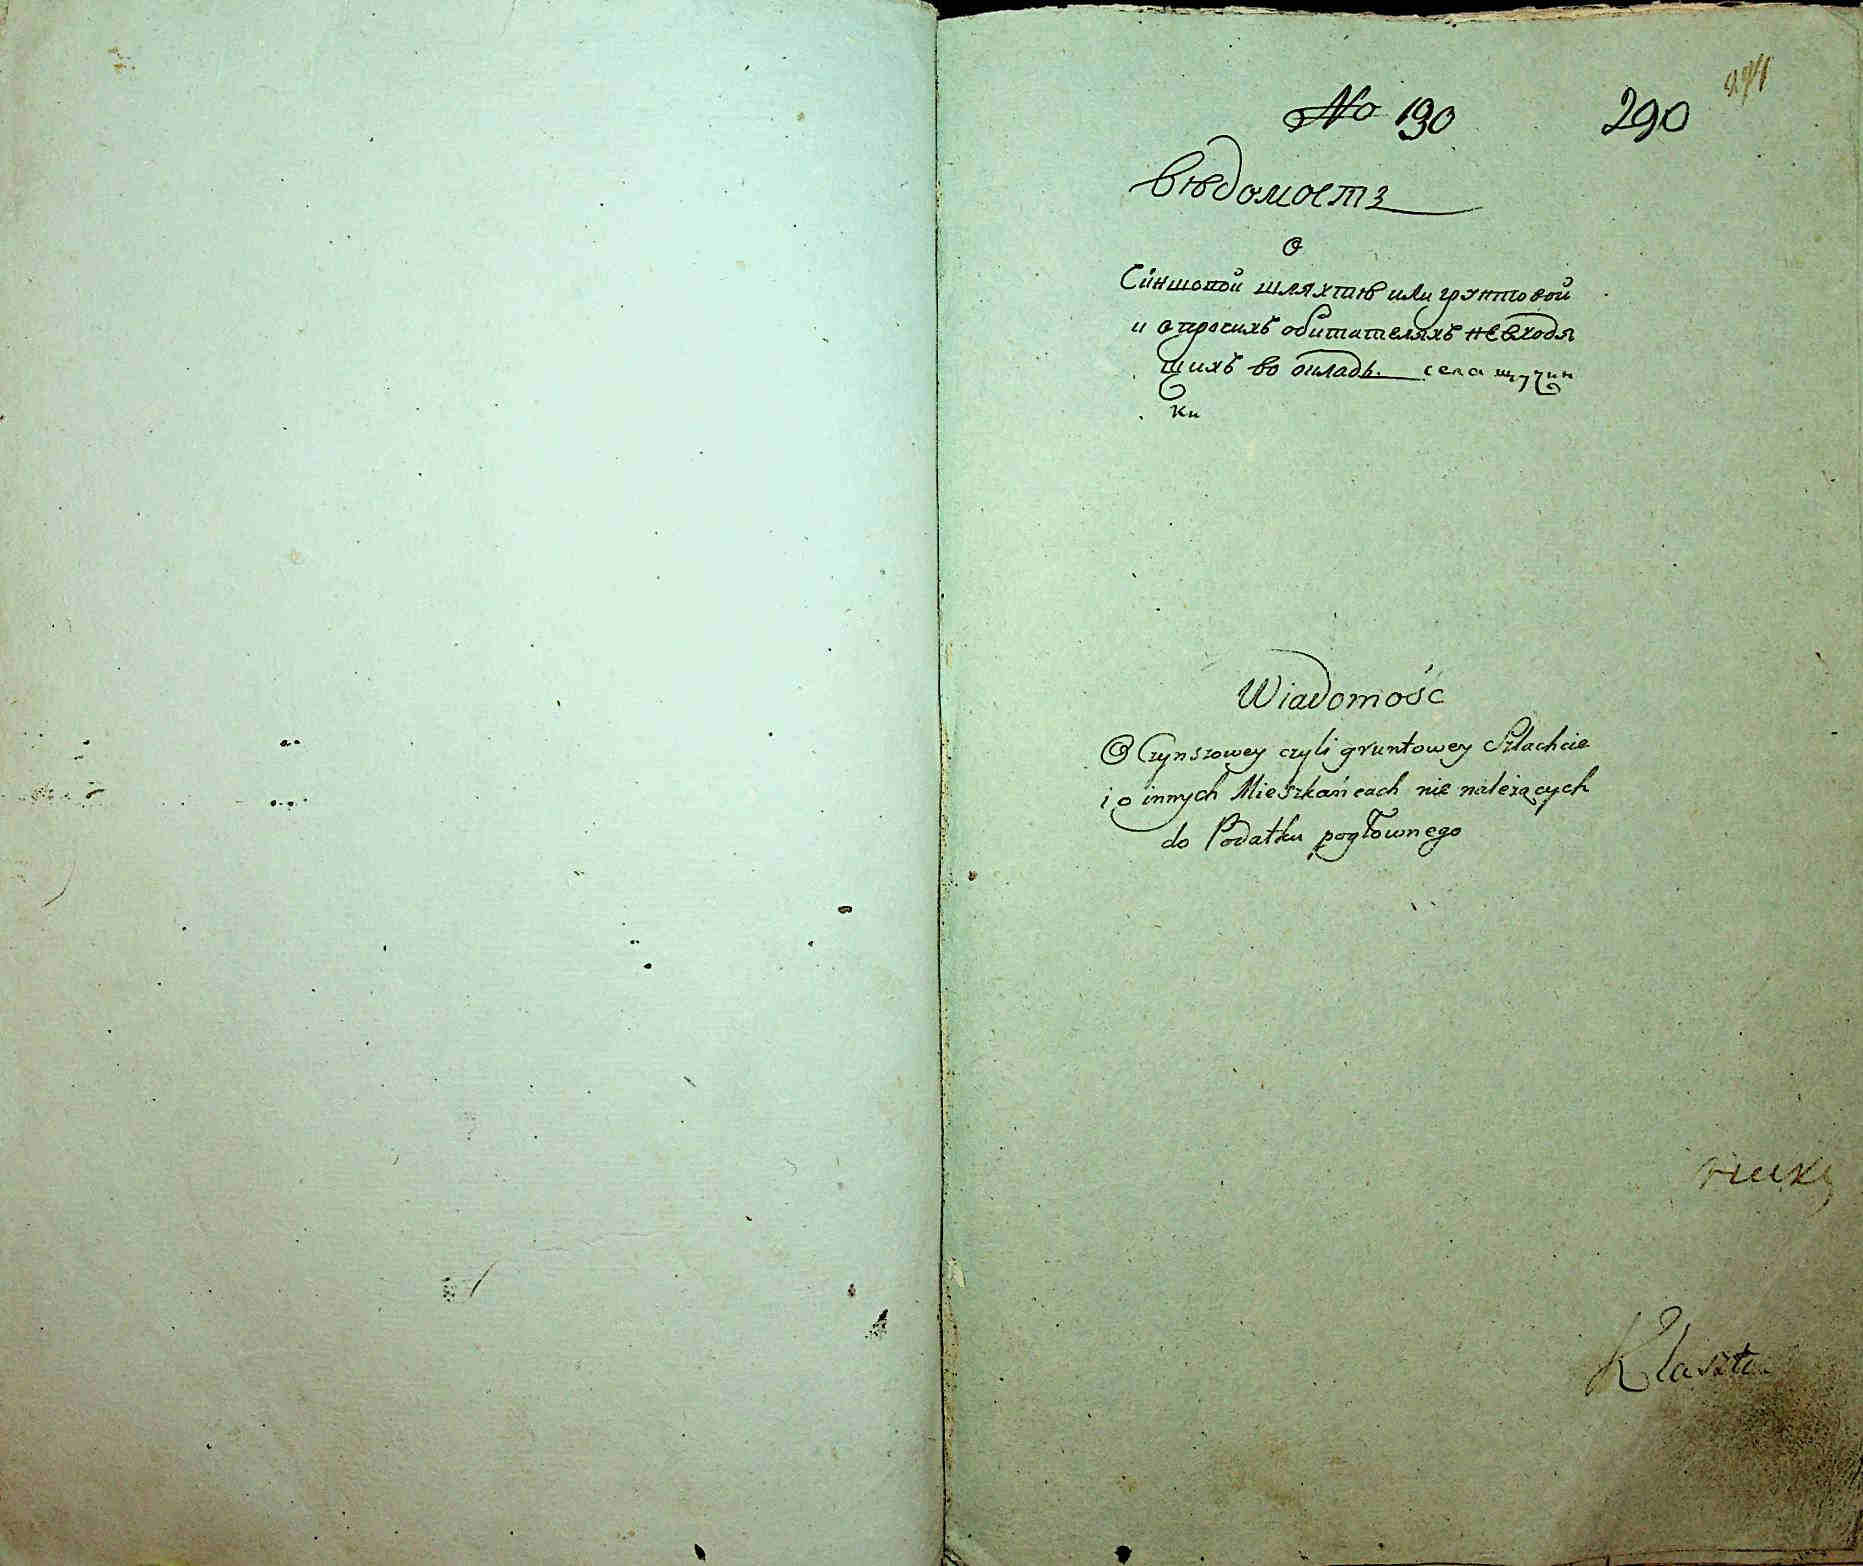 No 190 290
вѣдомость
О
Синшовой шляхтѣ или грунтовой
и о протихъ обитателяхъ невходя
щихъ во окладъ. села щучин
ки
Wiadomość
O Czynszowey czyli gruntowey Szlachcie
i o innych Mieszkańcach nie należących
do Podatku pogłownego